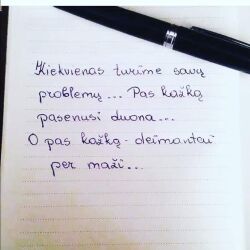 Kiekvienas turime savų
problemų... Pas kažką
pasenusi duona...
O pas kažką - deimantai
per maži...